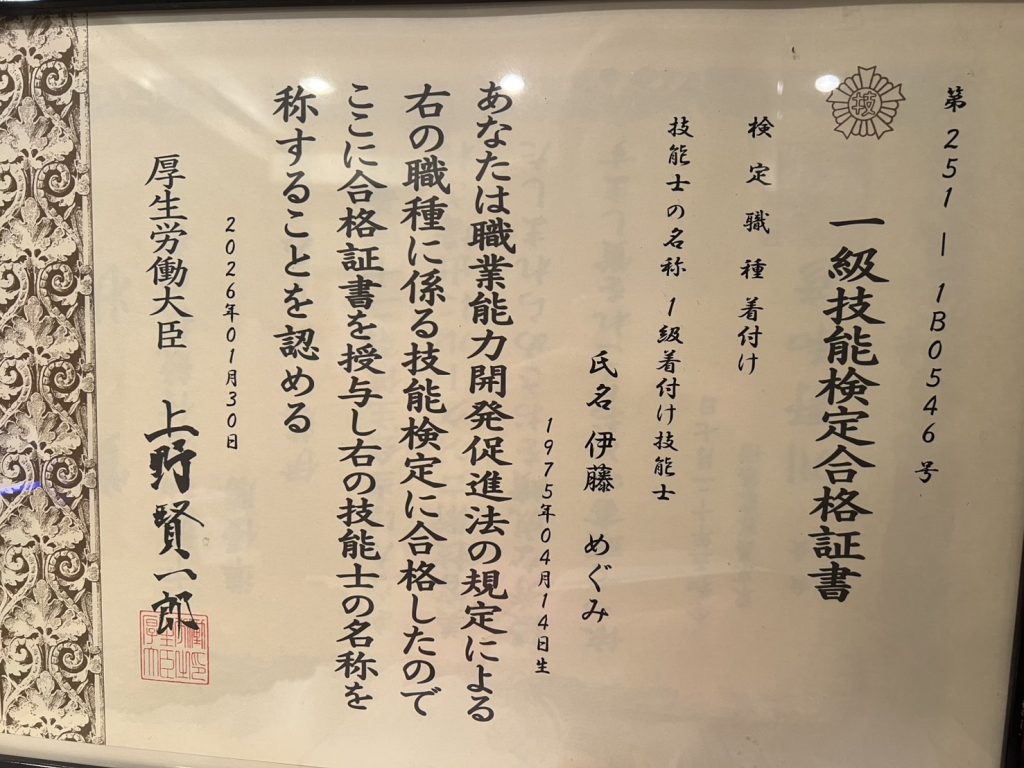 第251-1B0546号
技
一級技能検定合格証書
検定職種 着付け
技能士の名称 1級着付け技能士
氏名 伊藤 めぐみ
1975年04月14日生
あなたは職業能力開発促進法の規定による
右の職種に係る技能検定に合格したので
ここに合格証書を授与し右の技能士の名称を
称することを認める
2026年01月30日
厚生労働大臣 上野賢一郎